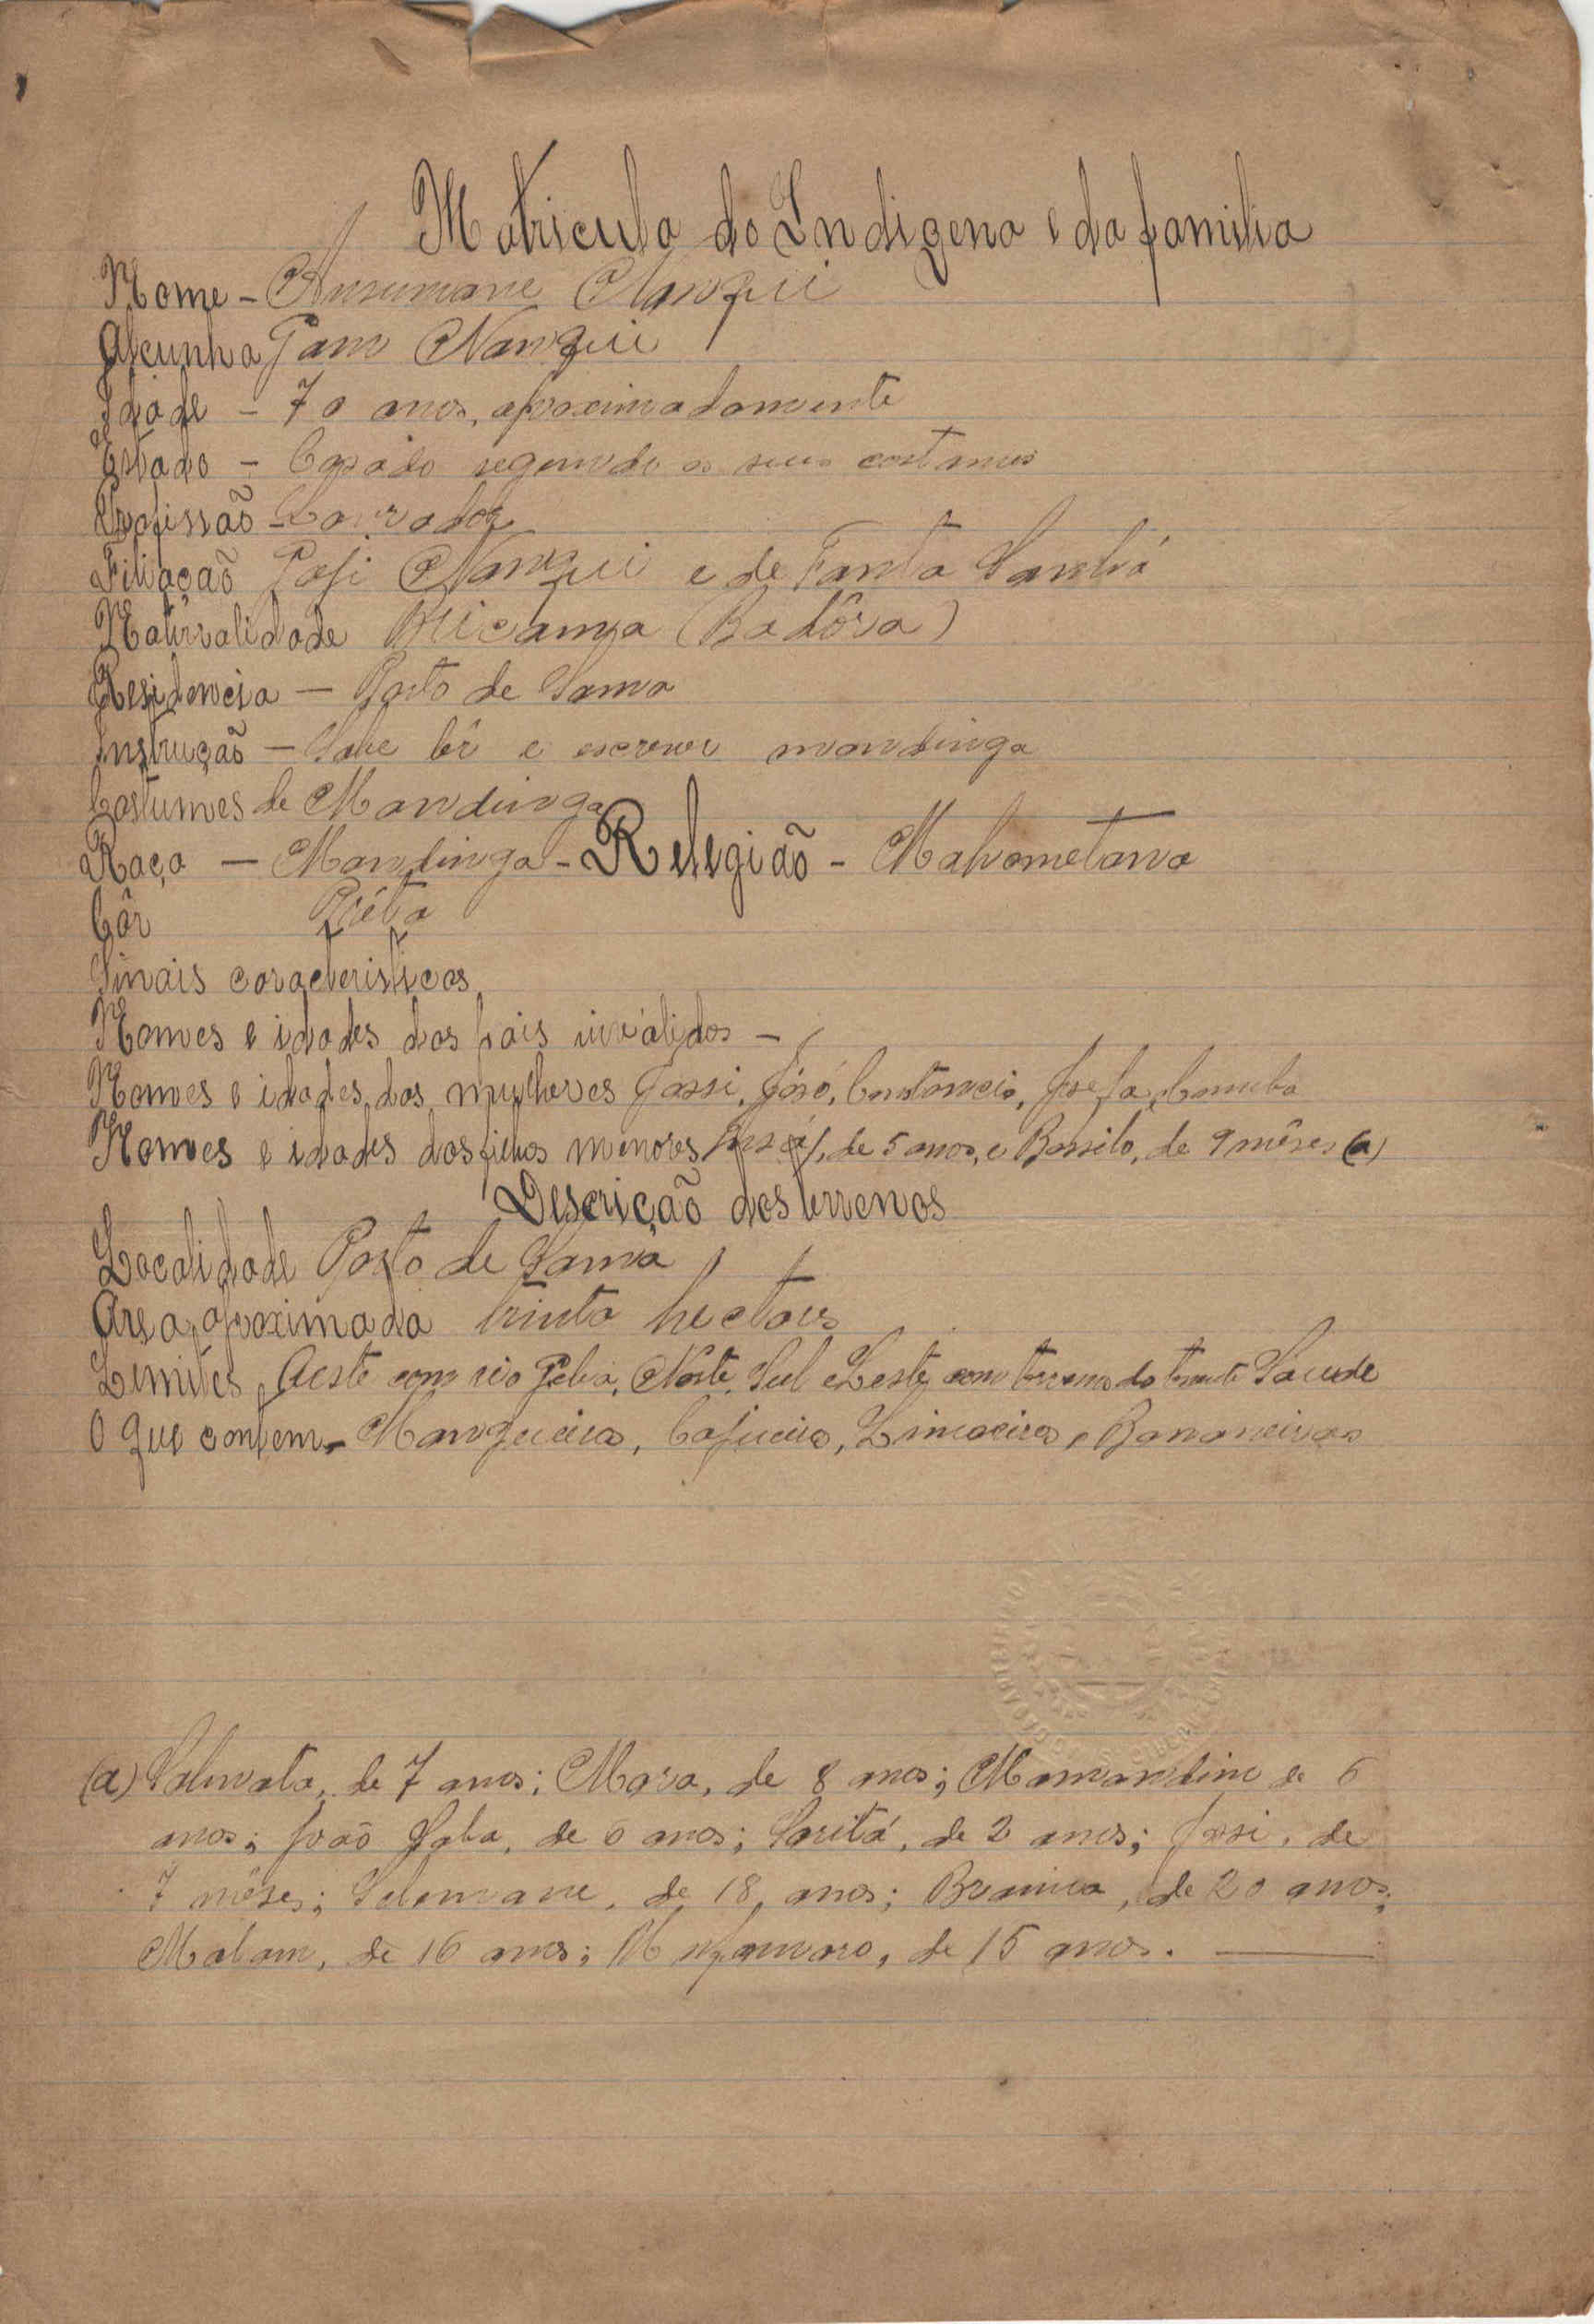 Matricula do Indigena e da familia
Nome - Ansumane Nanqui
Alcunha Nanqui
Idade - 70 anos, aproximadamente
Estado - Casado segundo os seus costumes
Profissão - Lavrador
Filiação Nanqui e de Fanta Sanhá
Naturalidade (Badôra)
Residencia - Porto de Sama
Instrução - Sabe lêr e escrever mandinga
Costumes de Mandinga
Raça - Mandinga - Relegião - Mahometana
Côr Préta
Sinais caracteristicos
Nomes e idades dos pais invalidos -
Nomes e idades das mulheres Constancia, Josefa,
Nomes e idades dos filhos menores de 5 anos, e de 9 mêses (a)
Descrição dos terrenos
Localidade Porto de Sama
Area aproximada trinta hectares
Limites Oeste com rio Geba, Norte, Sul e Leste com terrenos do
O que contem - Mangueiras, Cajueiros, Limoeiros e Bananeiras
(a) Salimata, de 7 anos; Mara, de 8 anos; Mamandim de 6
anos; João de anos; Saritá, de 2 anos; de
7 mêses; de 18 anos; de 20 anos;
Malam, de 16 anos; de 15 anos.